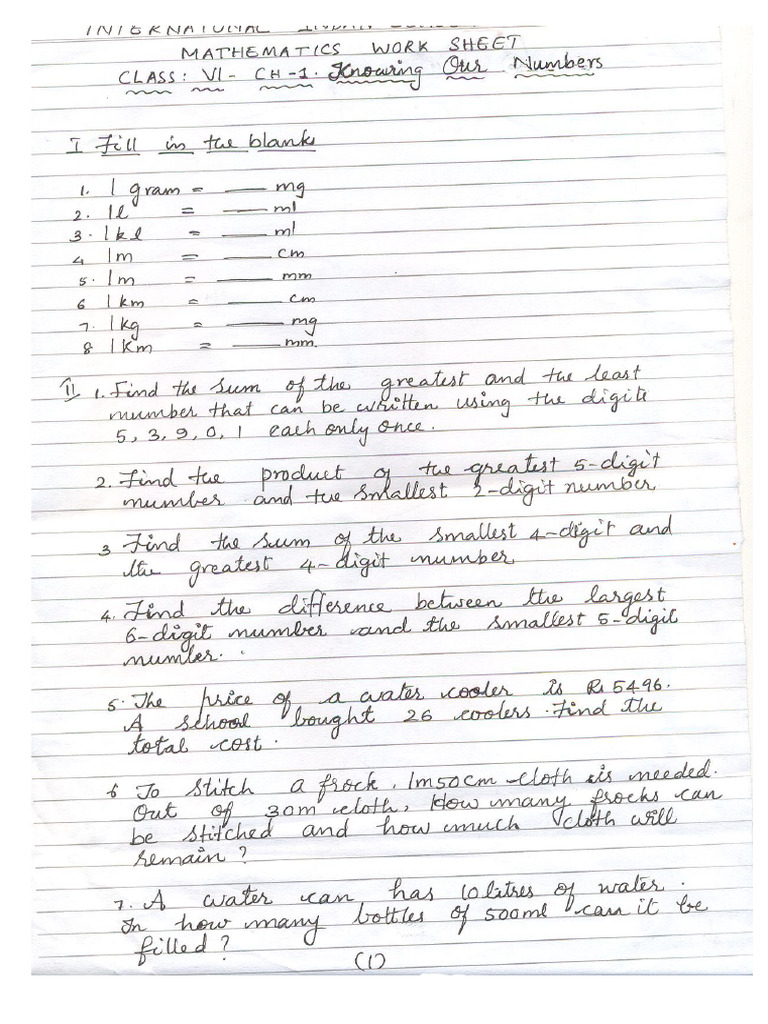 INTERNATIONAL INDIAN
MATHEMATICS WORK SHEET
CLASS: VI - CH-1. Knowing Our Numbers
I Fill in the blank
1. 1 gram = ___ mg
2. 1l = ___ ml
3. 1kl = ___ ml
4 1m = ___ cm
5. 1m = ___ mm
6 1 km = ___ cm
7. 1 kg = ___ mg
8 1 Km = ___ mm.
II 1. Find the sum of the greatest and the least
number that can be written using the digits
5, 3, 9, 0, 1 each only once.
2. Find the product of the greatest 5-digit
number and the smallest -digit number
3 Find the sum of the smallest 4-digit and
the greatest 4-digit number
4. Find the difference between the largest
6-digit number and the smallest 5-digit
number.
5. The price of a water cooler is Rs 5496.
A school bought 26 coolers. Find the
total cost.
6 To stitch a frock, 1m50cm cloth is needed.
Out of 30m cloth, How many frocks can
be stitched and how much cloth will
remain?
7. A water can has 10 litres of water.
In how many bottles of 500ml can it be
filled?
(1)